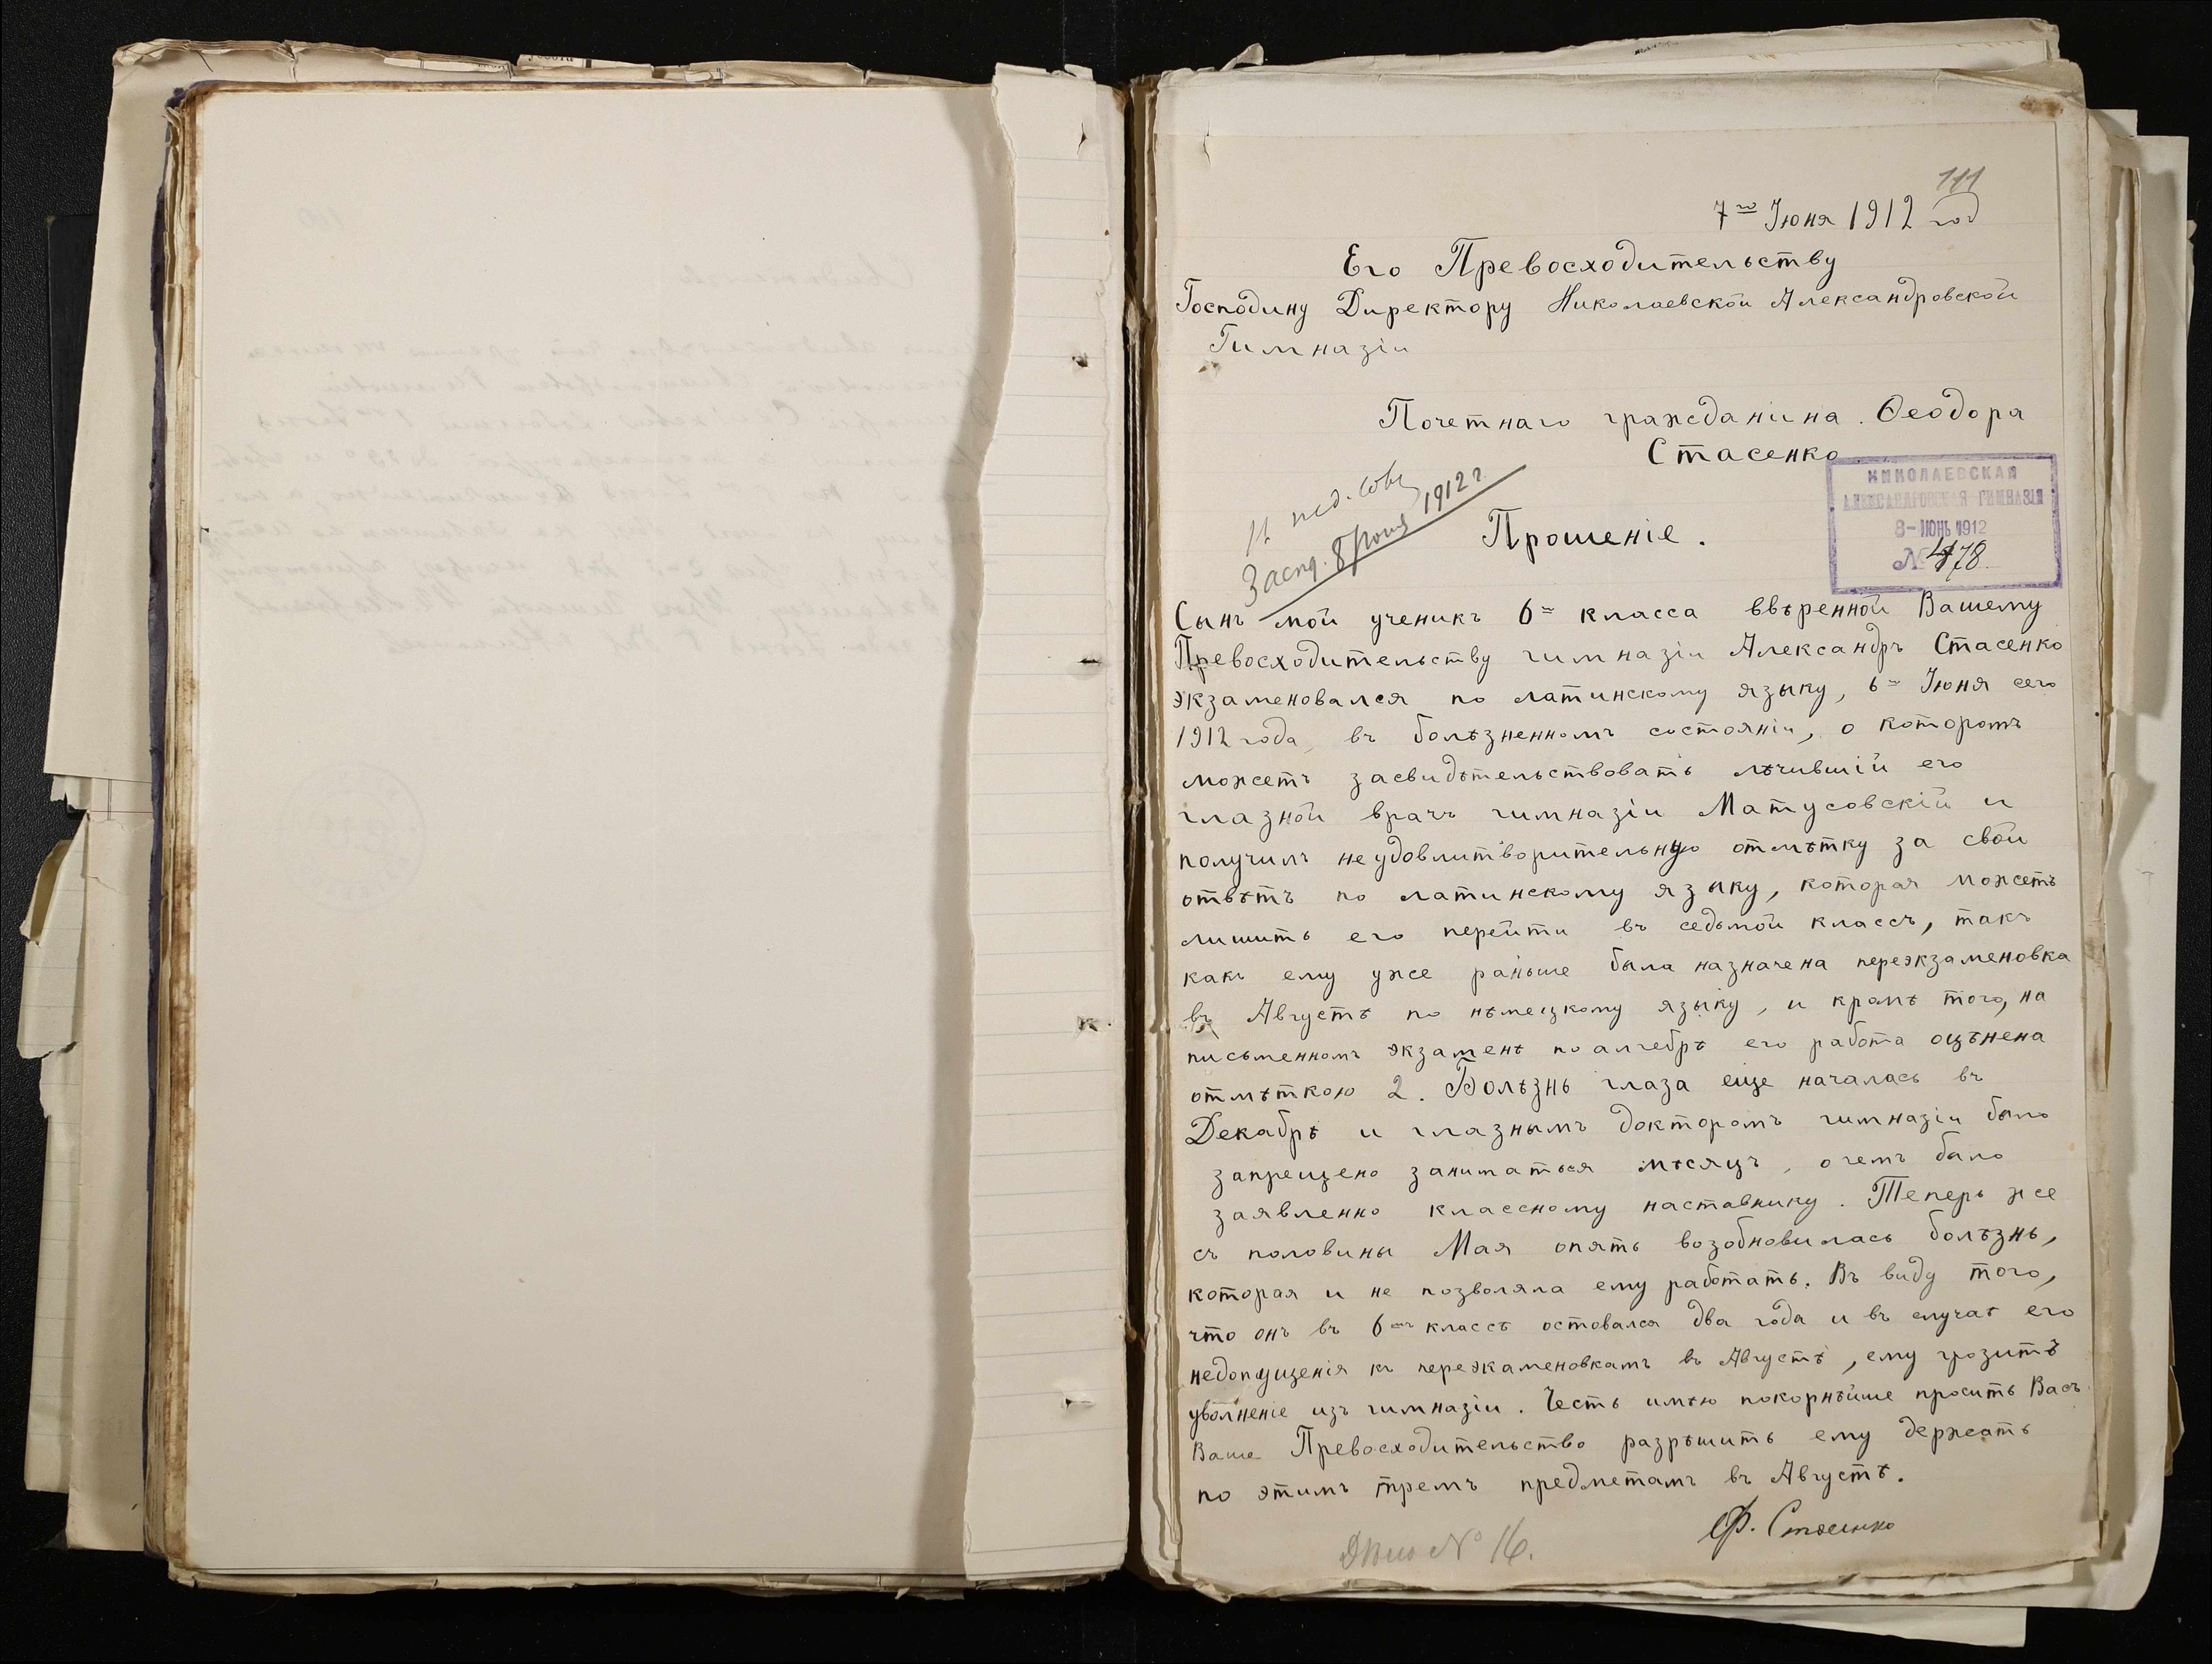 111
7го Іюня 1912 год
Его Превосходительству
Господину Директору Николаевской Александровской
Гимназіи
Почетнаго гражданина Ѳеодора
Стасенко
НИКОЛАЕВСКАЯ
АЛЕКСАНДРОВСКАЯ ГИМНАЗІЯ
8-ІЮНЬ 1912
№ 478.
пед. сов.
Засѣд. 8 Іюня 1912 г.
Прошеніе.
Сынъ мой ученикъ 6го класса ввѣренной Вашему
Превосходительству гимназіи Александръ Стасенко
экзаменовался по латинскому языку, 6го Іюня сего
1912 года, въ болѣзненномъ состояніи, о которомъ
можетъ засвидѣтельствовать лѣчившій его
глазной врачъ гимназіи Матусовскій и
получилъ неудовлитворительную отмѣтку за свой
отвѣтъ по латинскому языку, которая можетъ
лишить его перейти въ седьмой классъ, такъ
какъ ему уже раньше была назначена переэкзаменовка
въ Августѣ по нѣмецкому языку, и кромѣ того, на
письменномъ экзаменѣ по алгебрѣ его работа оцѣнена
отмѣткою 2. Болѣзнь глаза еще началась въ
Декабрѣ и глазнымъ докторомъ гимназіи было
запрещено заниматься мѣсяцъ, о чемъ было
заявленно классному наставнику. Теперь же
съ половины Мая опять возобновилась болѣзнь,
которая и не позволяла ему работать. Въ виду того,
что онъ въ 6омъ классѣ остовался два года и въ случаѣ его
недопущенія къ переэкаменовкамъ въ Августѣ, ему грозитъ
уволненіе изъ гимназіи. Честь имѣю покорнѣйше просить Васъ
Ваше Превосходительство разрѣшить ему держать
по этимъ тремъ предметамъ въ Августѣ.
Ф. Стасенко
Дѣло № 16.